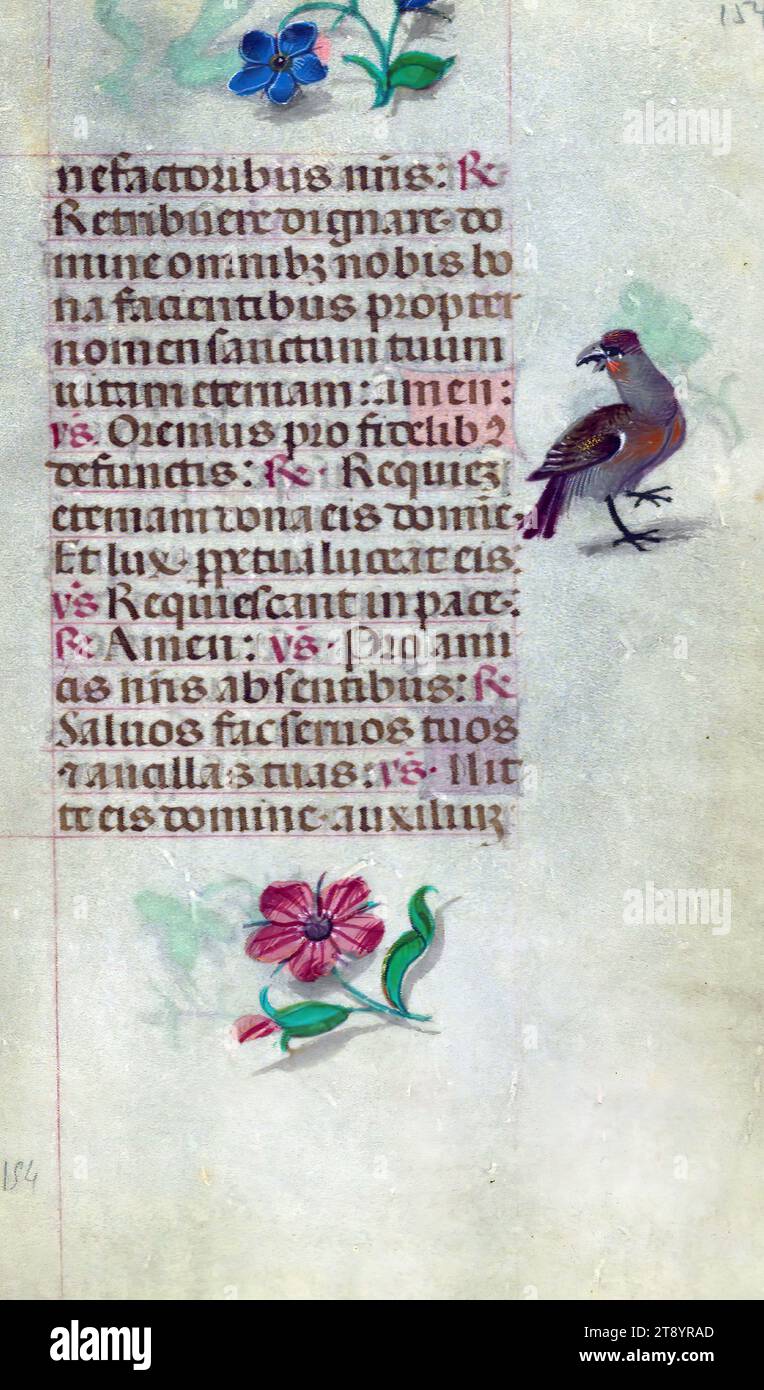 154
nefactoribus nris: R
Retribuere dignare do
mine omnibz nobis bo
na facientibus propter
nomen sanctum tuum
uitam eternam: amen:
vs. Oremus pro fidelib9
defunctis: R. Requiez
eternam dona eis domie.
Et lux ppetua luceat eis:
vs Requiescant in pace:
R. Amen: vs. Pro ami
cis nris absentibus: R
Saluos fac seruos tuos
⁊ ancillas tuas: vs. Mit
te eis domine auxiliuz
154
alamy
alamy
alamy
alamy
Image ID: 2T8YRAD
www.alamy.com